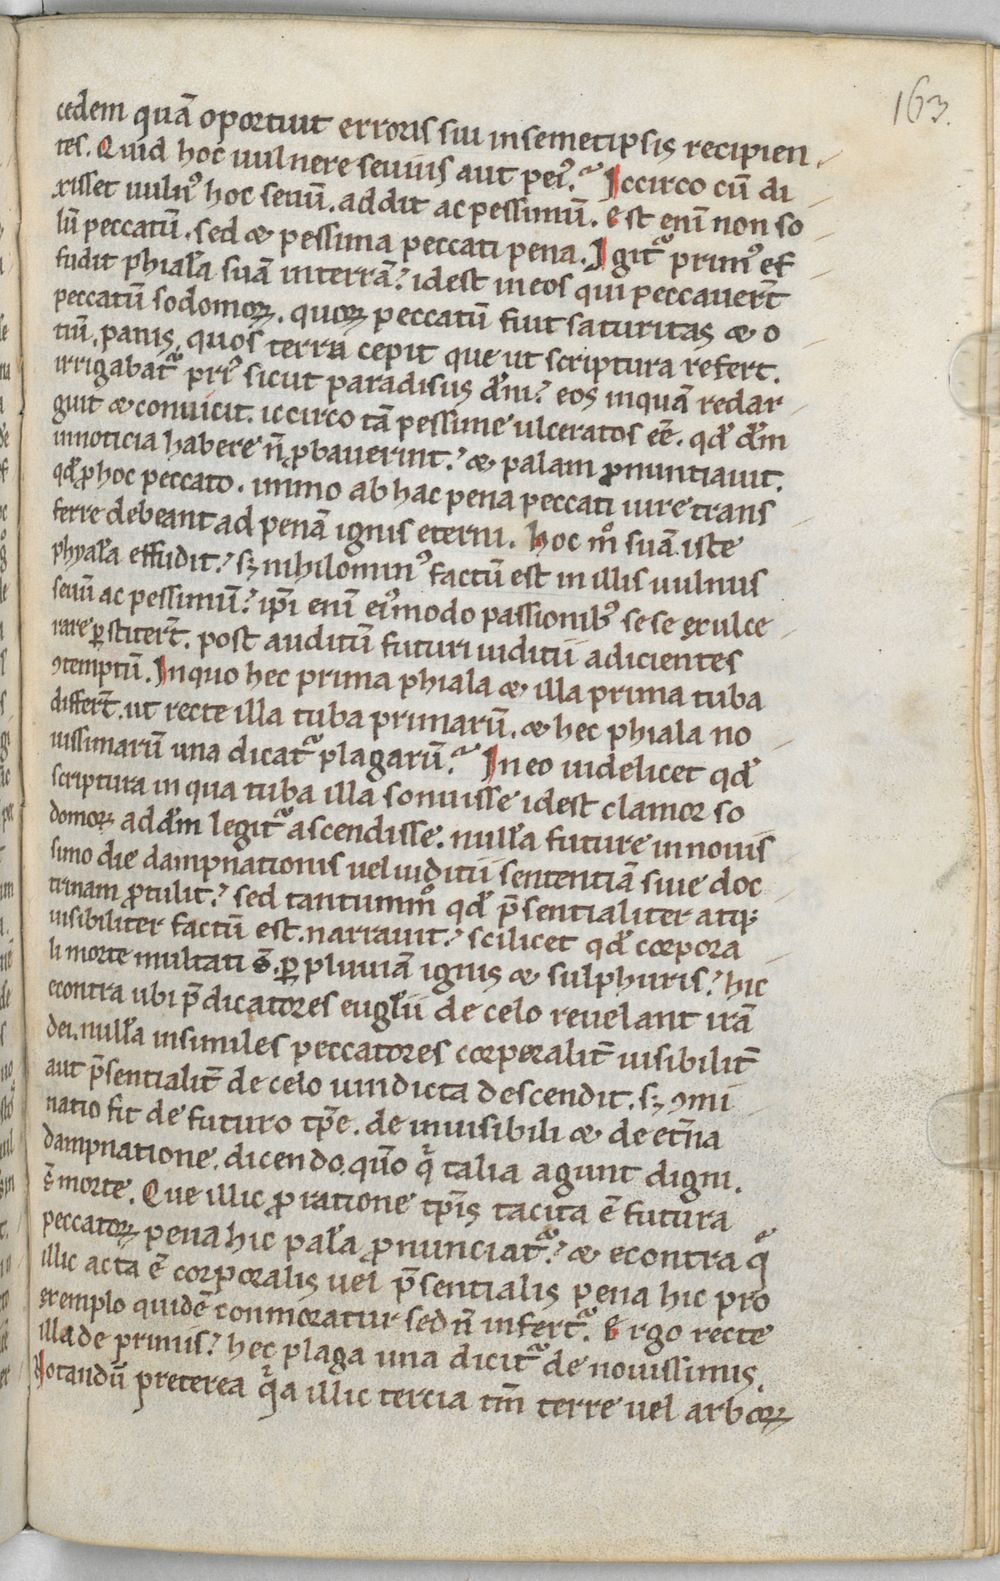 163.
cedem quā oportuit erroris sui insemetipsis recipien
tes. Quid hoc uulnere seuius aut pei᾽. Iccirco cū di
xisset uuln᾽ hoc seuū. addit ac pessimū. est enī non so
lū peccatū. sed & pessima peccati pena. Igit᷑ prim᾽ ef
fudit phiałā suā interrā? idest ineos qui peccauer̄t
peccatū sodomoꝝ. quoꝝ peccatū fuit saturitas & o
tiū. panis. quos terra cepit que ut scriptura refert.
irrigabat᷑ pri᾽ sicut paradisus dn̄i? eos inquā redar
guit & conuicit. iccirco tā pessime ulceratos eē. qđ dm̄
innoticia habere n̄ ꝓbauerint? & palam ꝓnuntiauit.
qđ ꝓ hoc peccato. immo ab hac pena peccati iure trans
ferre debeant ad penā ignis eterni. Hoc m̊ suā iste
phyałā effudit? sꝫ nihilomin᾽ factū est in illis uulnus
seuū ac pessimū? ip̄i enī ei᾽modo passionib᾽ sese exulce
rare ꝑstiter̄t. post auditū futuri iuditii adicientes
ꝯtemptū. Inquo hec prima phiala & illa prima tuba
differt̄. ut recte illa tuba primarū. & hec phiala no
uissimarū una dicat᷑ plagarū? In eo uidelicet qđ
scriptura in qua tuba illa sonuisse idest clamor so
domoꝝ ad dm̄ legit᷑ ascendisse. nulła future innouis
simo die dampnationis uel iuditii sententiā siue doc
trinam ꝓtulit? sed tantumm̊ qđ p̄sentialiter atqꝫ
uisibiliter factū est. narrauit? scilicet qđ corpora
li morte multati s̄. ꝑ pluuiā ignis & sulphuris? hic
econtra ubi p̄dicatores eugłii de celo reuelant irā
dei. nulła insimiles peccatores corporalit̄ uisibilit̄
aut p̄sentialit̄ de celo uindicta descendit. sꝫ ꝯmi
natio fit de futuro tp̄e. de inuisibili & de et̄na
dampnatione. dicendo. quō q̇ talia agunt digni.
s̄ morte. Que illic ꝓ ratione tp̄is tacita ē futura
peccatoꝝ pena hic pałā ꝓnunciat᷑? & econtra q̄
illic acta ē corporalis uel p̄sentialis pena hic pro
exemplo quidē conmoratur sed n̄ infert᷑. Ergo recte
illa de primis? hec plaga una dicit᷑ de nouissimis.
Notandū preterea q̇a illic tercia tm̄ terre uel arboꝝ